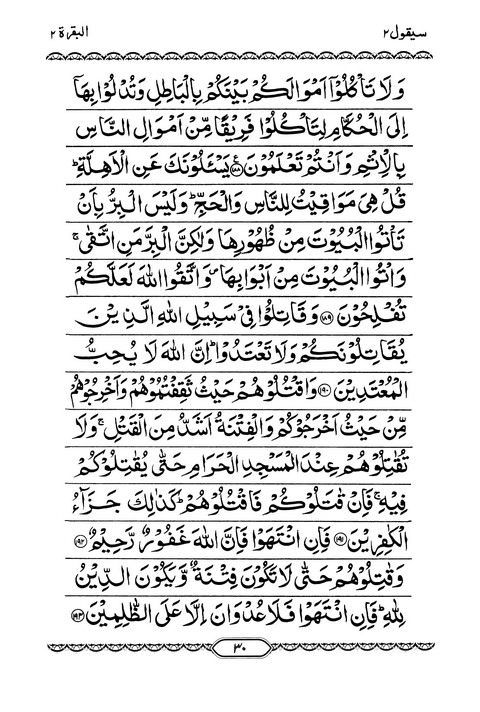 سيقول ٢
البقرة ٢
وَلَا تَأْكُلُوْٓا اَمْوَالَكُمْ بَيْنَكُمْ بِالْبَاطِلِ وَتُدْلُوْا بِهَآ
اِلَى الْحُكَّامِ لِتَأْكُلُوْا فَرِيْقًا مِّنْ اَمْوَالِ النَّاسِ
بِالْاِثْمِ وَاَنْتُمْ تَعْلَمُوْنَ ﴿۱۸۸﴾ يَسْـَٔلُوْنَكَ عَنِ الْاَهِلَّةِ ؕ
قُلْ هِيَ مَوَاقِيْتُ لِلنَّاسِ وَالْحَجِّ ؕ وَلَيْسَ الْبِرُّ بِاَنْ
تَاْتُوا الْبُيُوْتَ مِنْ ظُهُوْرِهَا وَلٰكِنَّ الْبِرَّ مَنِ اتَّقٰى ۚ
وَاْتُوا الْبُيُوْتَ مِنْ اَبْوَابِهَا ۪ وَاتَّقُوا اللّٰهَ لَعَلَّكُمْ
تُفْلِحُوْنَ ﴿۱۸۹﴾ وَقَاتِلُوْا فِيْ سَبِيْلِ اللّٰهِ الَّذِيْنَ
يُقَاتِلُوْنَكُمْ وَلَا تَعْتَدُوْا ؕ اِنَّ اللّٰهَ لَا يُحِبُّ
الْمُعْتَدِيْنَ ﴿۱۹۰﴾ وَاقْتُلُوْهُمْ حَيْثُ ثَقِفْتُمُوْهُمْ وَاَخْرِجُوْهُمْ
مِّنْ حَيْثُ اَخْرَجُوْكُمْ وَالْفِتْنَةُ اَشَدُّ مِنَ الْقَتْلِ ۚ وَلَا
تُقٰتِلُوْهُمْ عِنْدَ الْمَسْجِدِ الْحَرَامِ حَتّٰى يُقٰتِلُوْكُمْ
فِيْهِ ۚ فَاِنْ قٰتَلُوْكُمْ فَاقْتُلُوْهُمْ ؕ كَذٰلِكَ جَزَآءُ
الْكٰفِرِيْنَ ﴿۱۹۱﴾ فَاِنِ انْتَهَوْا فَاِنَّ اللّٰهَ غَفُوْرٌ رَّحِيْمٌ ﴿۱۹۲﴾
وَقٰتِلُوْهُمْ حَتّٰى لَا تَكُوْنَ فِتْنَةٌ وَّيَكُوْنَ الدِّيْنُ
لِلّٰهِ ؕ فَاِنِ انْتَهَوْا فَلَا عُدْوَانَ اِلَّا عَلَى الظّٰلِمِيْنَ ﴿۱۹۳﴾
٣٠